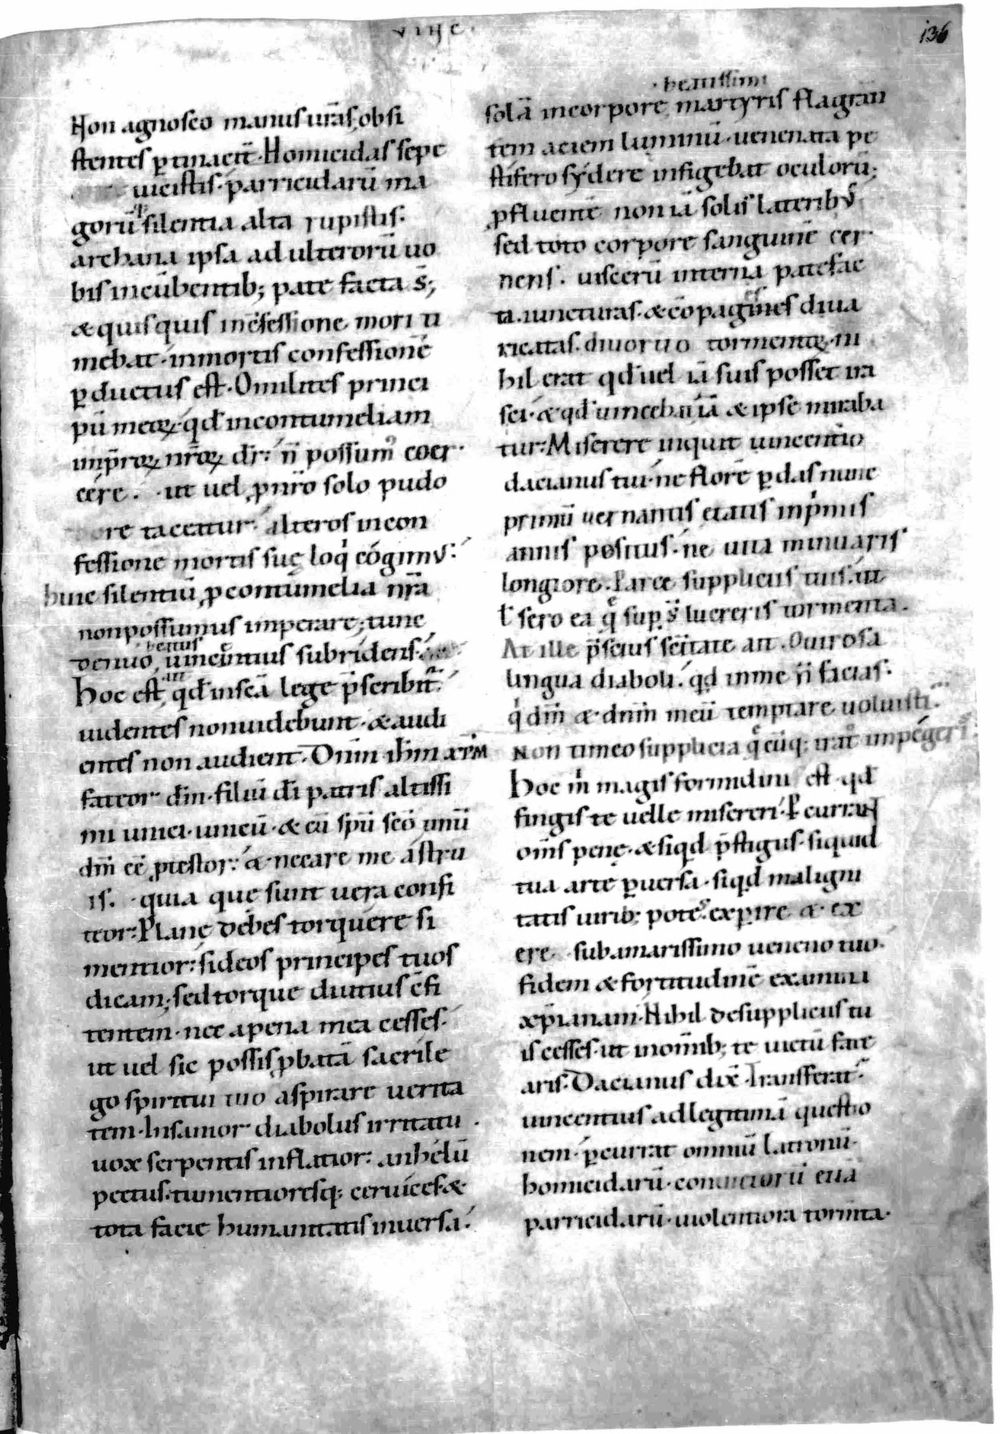 viiii c.
136
Non agnosco manus ur̄as, obsi
stentes ꝑtinacit̄. Homicidas sepe
uicistis. parricidarū ma
gorū silentia alta rupistis.
archana ipsa adulterorū uo
bis incūbentib; pate facta s̄;
& quisquis in c̄fessione mori ti
mebat. in mortis confessionē
ꝑductus est. O milites princi
pū meoꝝ. qđ in contumeliam
imꝑroꝝ nr̄oꝝ dr̄. n̄ possum᷒ coer
cére. ut uel ꝓ nr̄o solo pudo
re taceatur. alteros in con
fessione mortis suę loqͥ cógimꝰ.
huic silentiū ꝓ contumelia nr̄a
non possumus imperare; tunc
beatus
denuo, uincentius subridens.
hoc est qđ in scā lege p̄scribit̄.
uidentes non uidebunt. & audi
entes non audient. Dn̄m ih̄m xp̄m
fateor dn̄m. filiū dī patris altissi
mi unici unicū. & cū spū scō unū
dm̄ eē ꝓtestor. & necare me astru
is. quia que sunt uera confi
teor. Plane debes torquére si
mentior. si deos principes tuos
dicam; sed torque diutius c̄fi
tentem. nec a pena mea cesses.
ut uel sic possis ꝓbatā sacrile
go spiritui tuo aspirare uerita
tem. Insanior diabolus irritatu
uox serpentis inflatior. anhélū
pectus. tumentioresq; ceruices. &
tota facie humanitatis inuersa.
beatissimi
solā in corpore martyris flagran
tem aciem luminū. uenenata pe
stifero sydere infigebat oculorū;
ꝓfluentē non iā solis lateribꝰ
sed toto corpore sanguinē cer
nens. uiscerū interna patefac
ta. iuncturas. & cōpagines diua
ricatas. diuortio tormentoꝝ. ni
hil erat qđ uel iā suis posset ira
sci. & qđ uincebat iā & ipse miraba
tur. Miserere inquit uincentio
dacianus tui. ne florē ꝑdas nunc
primū uernantis etatis in pͥmis
annis positus. ne uita minuaris
longiore. Parce suppliciis tuis. ut
ł sero ea q̄ sup̱s̄ lucreris tormenta.
At ille p̄scius scī̄tate ait. O uirosa
lingua diaboli. qđ in me n̄ facias.
qͥ dm̄ & dnm̄ meū temptare uoluisti.
Non timeo supplicia q̄cūq; irat᷒ impegeris.
hoc m̄ magis formidini est. qđ
fingis te uelle misereri. Ꝑcurrant
om̄s pene. & siqđ p̄stigus. siquid
tua arte ꝑuersa. siqđ maligni
tatis uirib; potes. exꝑire & ex
ere sub amarissimo ueneno tuo.
fidem & fortitudinē examini
xp̄ianam. Nihil de suppliciis tu
is cesses. ut in om̄ib; te uictū fate
aris. Dacianus dix̄. Transferat̄
uincentius ad legitimā questio
nem. ꝑcurrat omniū latronū.
homicidarū. etiā
parricidarū. uiolentiora torm̄ta.